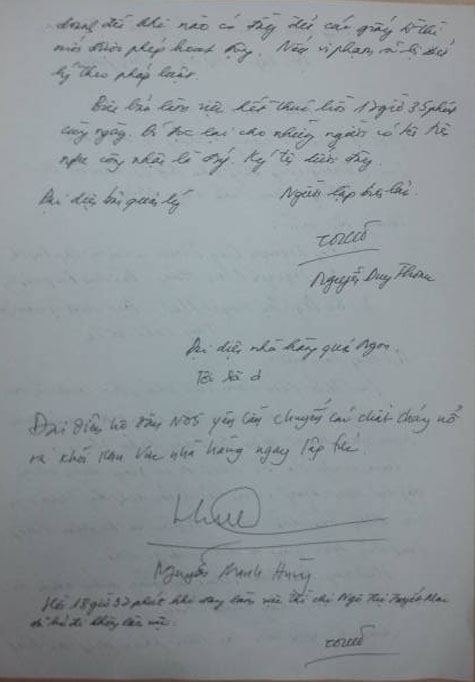 động đến khi nào có đầy đủ các giấy tờ thì
mới được phép hoạt động. Nếu vi phạm sẽ bị xử
lý theo pháp luật.
Biên bản làm việc kết thúc lúc 17 giờ 35 phút
cùng ngày. Đã đọc lại cho những người có tên trên
nghe công nhận là đúng. Ký tên dưới đây.
Đại diện ban quản lý
Người lập biên bản.
Nguyễn Duy
Đại diện nhà hàng quá Ngon.
Đại diện hộ dân N05 yêu cầu chuyển các chất cháy nổ
ra khỏi khu vực nhà hàng ngay lập tức.
Nguyễn Mạnh Hùng
Hồi 18 giờ 37 phút khi đang làm việc thì chị Ngô Thị Tuyết Mai
đã bỏ đi không làm việc.